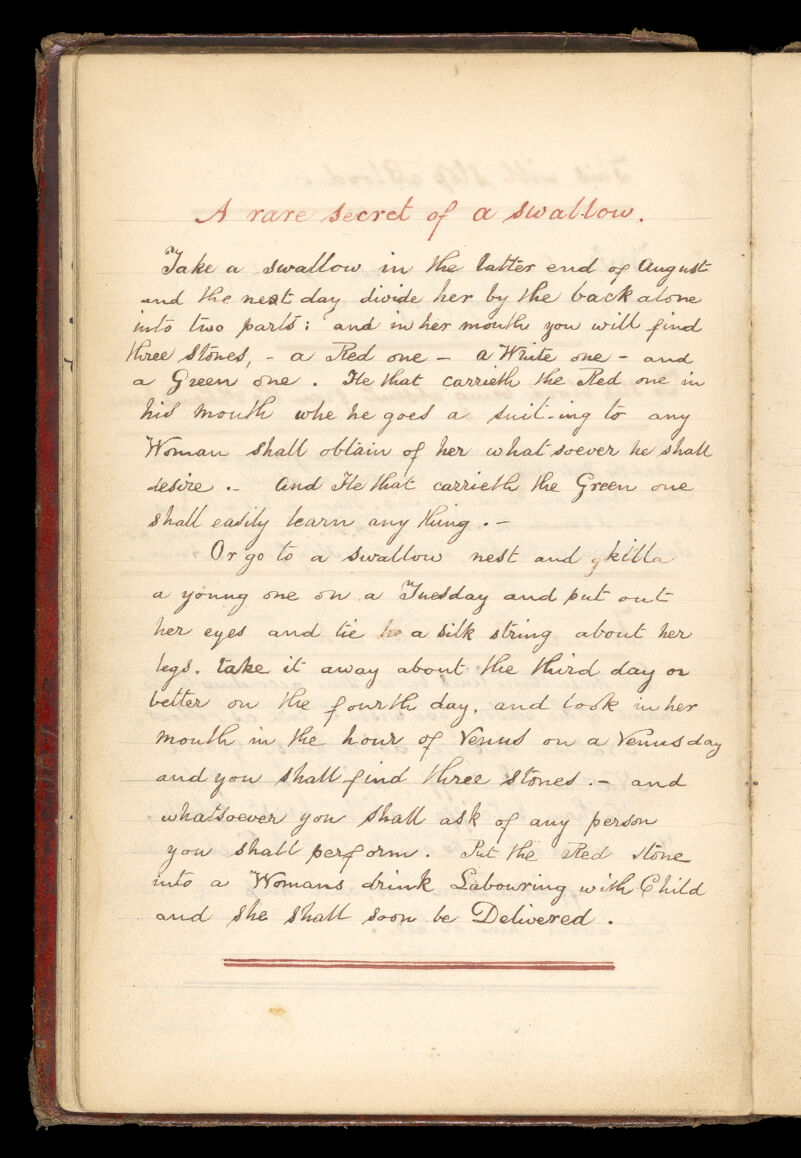 A rare secret of a swallow.
Take a swallow in the latter end of August
and the next day divide her by the back alone
into two parts: and in her mouth you will find
three stones, - a Red one - a White one - and
a Green one. He that carrieth the Red one in
his mouth whe he goes a suit-ing to any
Woman shall obtain of her whatsoever he shall
desire .- And He that carrieth the Green one
shall easily learn any thing .-
Or go to a swallow nest and kill a
a young one on a Tuesday and put out
her eyes and tie a silk string about her
legs. take it away about the third day or
better on the fourth day, and look in her
mouth in the hour of Venus on a Venus day
and you shall find three stones .- and
whatsoever you shall ask of any person
you shall perform. Put the Red stone
into a Womans drink Labouring with Child
and she shall soon be Delivered.